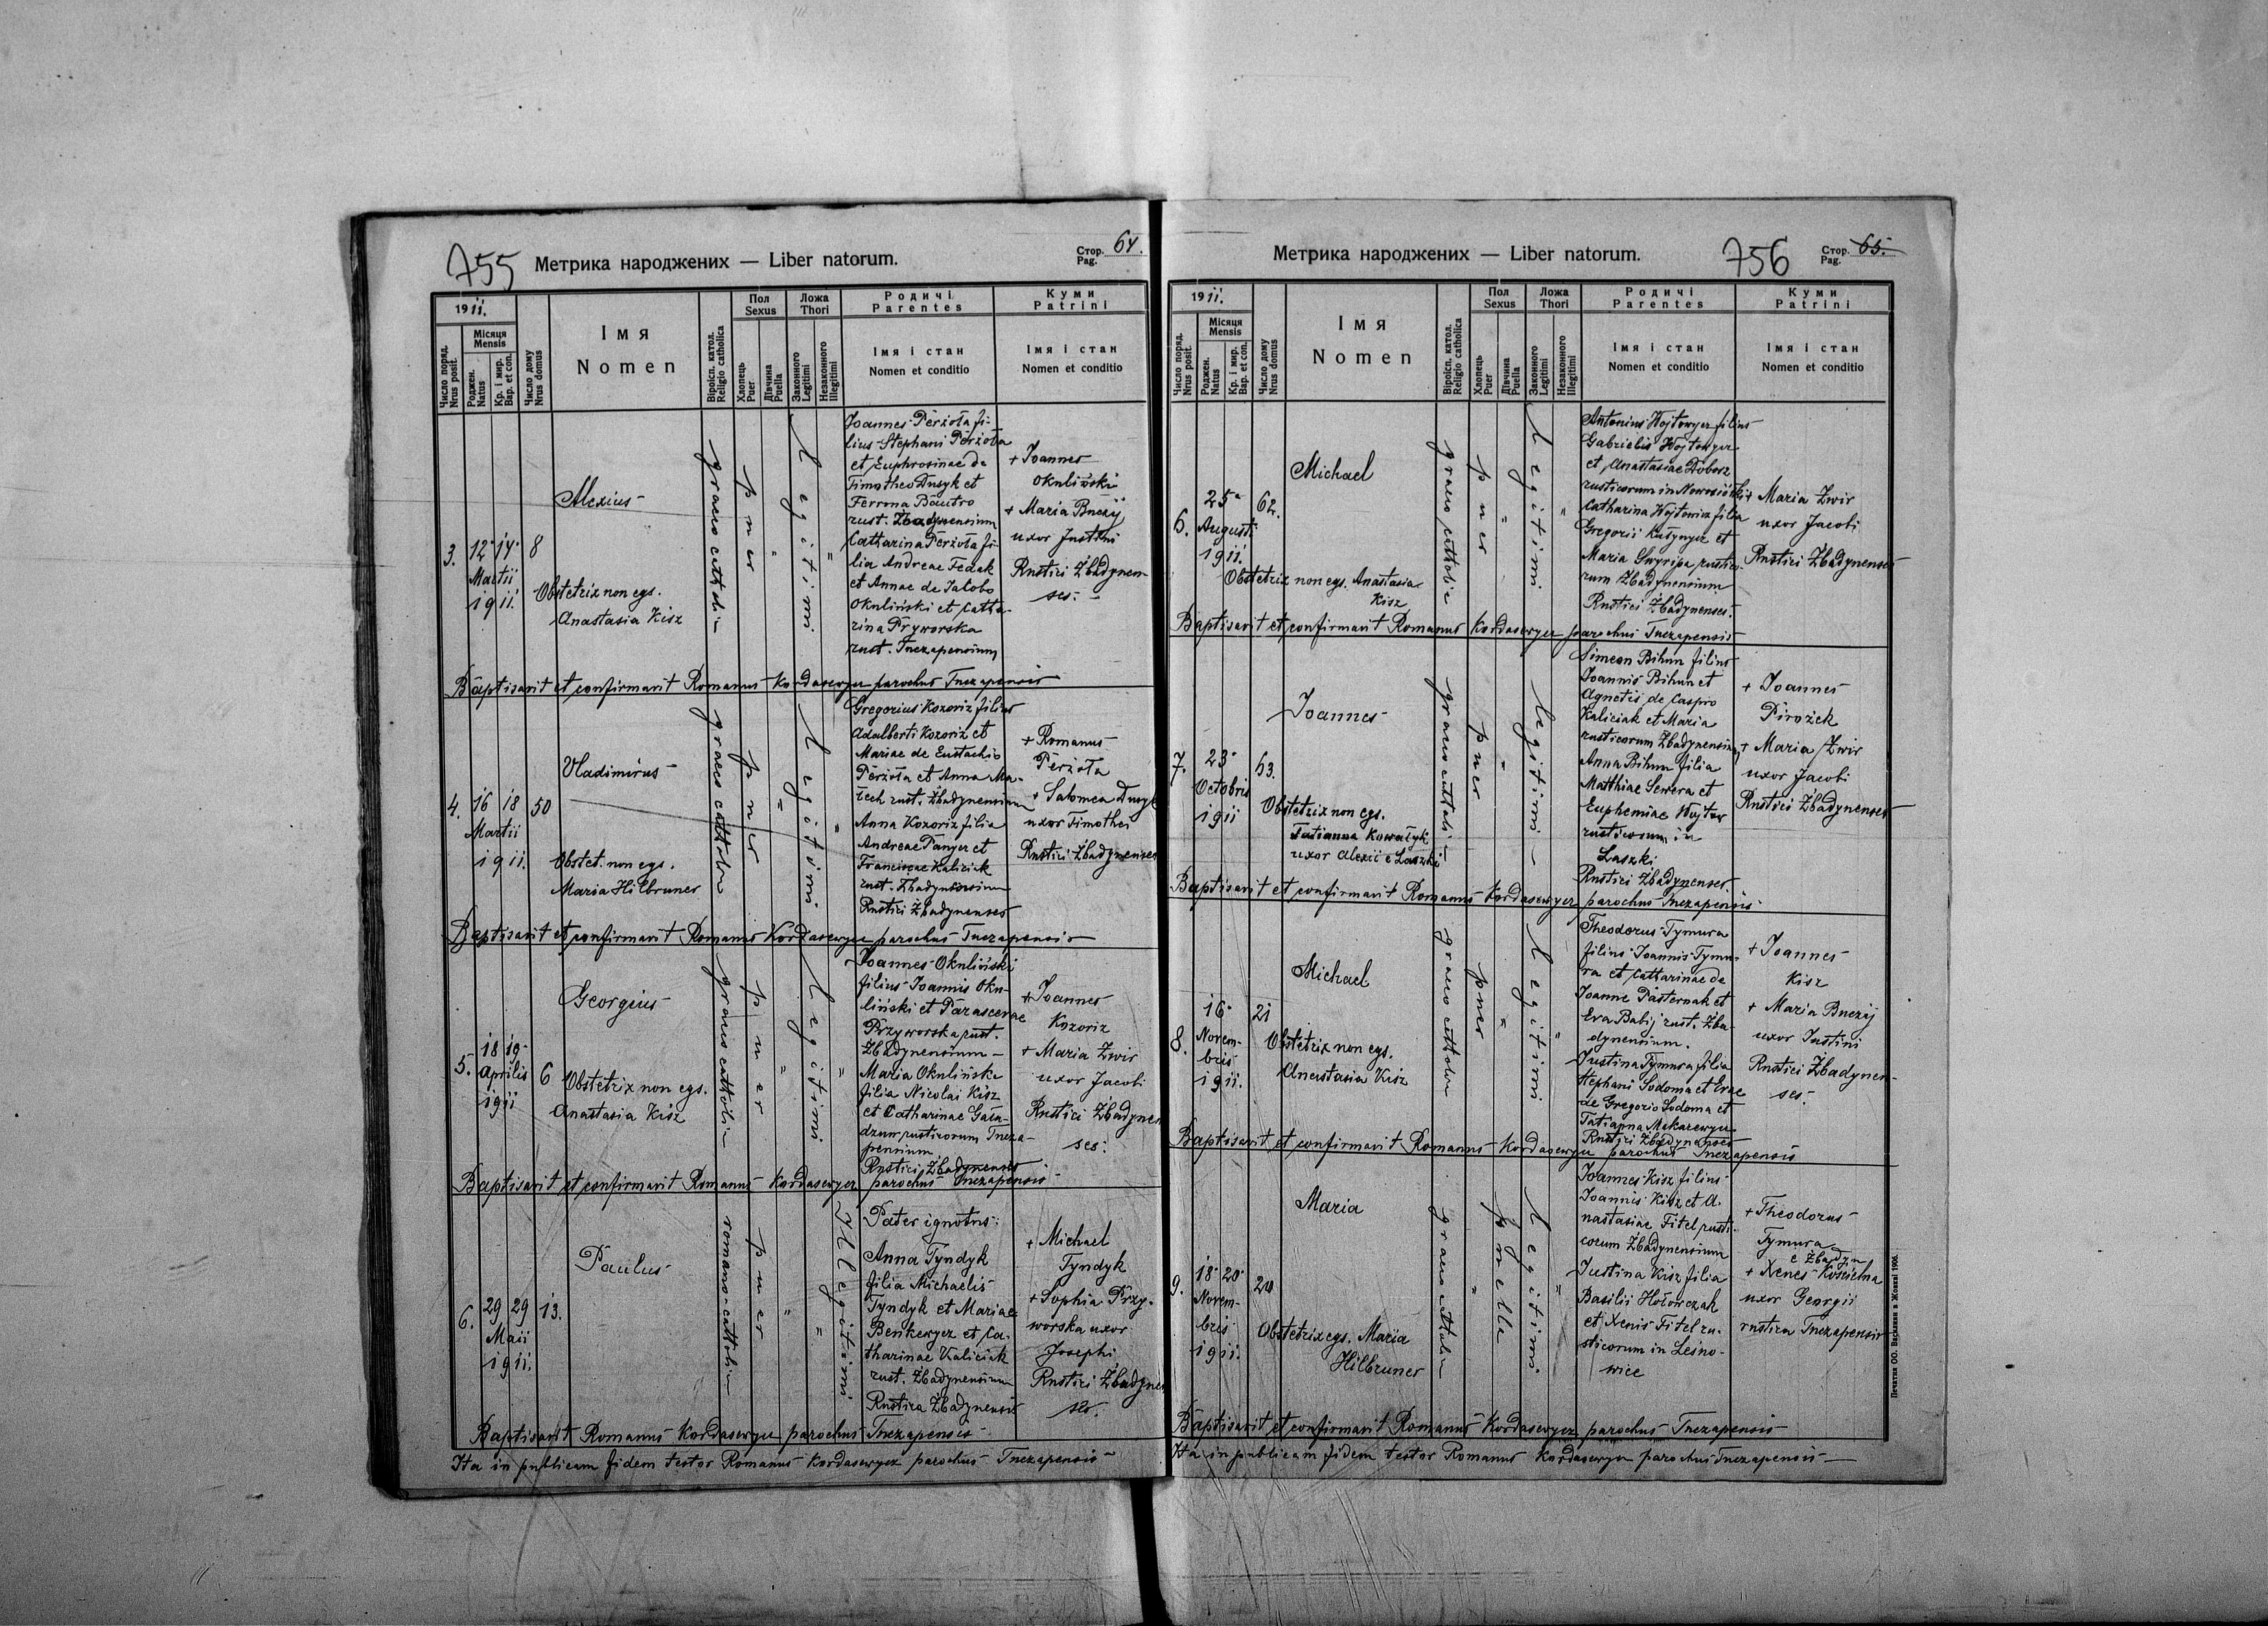 755
Метрика народжених — Liber natorum.
Стор. Pag. 64.
1911.
Число поряд. Nrus posit.
Місяця Mensis
Роджен. Natus
Кр. і мир. Bap. et con.
Число дому Nrus domus
Імя
Nomen
Віроісп. катол. Religio catholica
Пол Sexus
Хлопець Puer
Дївчина Puella
Ложа Thori
Законного Legitimi
Незаконного Illegitimi
Родичі
Parentes
Імя і стан
Nomen et conditio
Куми
Patrini
Імя і стан
Nomen et conditio
3.
12 14
Martii
1911.
8
Alexius
Obstetrix non egs.
Anastasia Kisz
graeco catholic
puer
"
Legitimi
"
Joannes Perżoła fi-
lius Stephani Perżoła
et Euphrosinae de
Timotheo Dusyk et
rust. Żbadynensium
Catharina Perżoła fi-
lia Andreae Fedak
et Annae de Jacobo
Okuliński et Catha-
rina Pryworska
rust. Tuczapensium
+ Joannes
Okuliński
+ Maria Buczij
uxor Justini
Rustici Żbadynen-
ses.
Baptisavit et confirmavit Romanus Kordasewycz parochus Tuczapensis
4.
16 18
Martii
1911.
50
Vladimirus
Obstet. non egs.
Maria Hilbruner
graeco catholic
puer
"
Legitimi
"
Gregorius Kozoriz filius
Adalberti Kozoriz et
Mariae de Eustachio
Perżoła et Anna Ma-
zech rust. Żbadynensium
Anna Kozoriz filia
Andreae Panycz et
Franciscae Kaliciak
rust. Żbadynensium
Rustici Żbadynenses
+ Romanus
Perżoła
+ Salomea Dusyk
uxor Timothei
Rustici Żbadynenses
Baptisavit et confirmavit Romanus Kordasewycz parochus Tuczapensis
5.
18 19
Aprilis
1911
6
Georgius
Obstetrix non egs.
Anastasia Kisz
graeco catholic
puer
"
Legitimi
"
Joannes Okuliński
filius Joannis Oku-
liński et Parascevae
Przyworska rust.
Żbadynensium
Maria Okulińska
filia Nicolai Kisz
et Catharinae Gała-
dzun rusticorum Tucza-
pensium
Rustici Żbadynenses
+ Joannes
Kozoriz
+ Maria Zwir
uxor Jacobi
Rustici Żbadynen
ses.
Baptisavit et confirmavit Romanus Kordasewycz parochus Tuczapensis
6.
29 29
Maii
1911.
13.
Paulus
romano-catholic
puer
"
"
Illegitimi
Pater ignotus.
Anna Tyndyk
filia Michaelis
Tyndyk et Mariae
Benkewycz et Ca-
tharinae Kaliciak
rust. Żbadynensium
Rustica Żbadynensis
+ Michael
Tyndyk
+ Sophia Przy-
worska uxor
Josephi
Rustici Żbadynen
ses.
Baptisavit Romanus Kordasewycz parochus Tuczapensis
Ita in publicam fidem testor Romanus Kordasewycz parochus Tuczapensis
Метрика народжених — Liber natorum.
756
Стор. Pag. 65.
1911.
Число поряд. Nrus posit.
Місяця Mensis
Роджен. Natus
Кр. і мир. Bap. et con.
Число дому Nrus domus
Імя
Nomen
Віроісп. катол. Religio catholica
Пол Sexus
Хлопець Puer
Дївчина Puella
Ложа Thori
Законного Legitimi
Незаконного Illegitimi
Родичі
Parentes
Імя і стан
Nomen et conditio
Куми
Patrini
Імя і стан
Nomen et conditio
6.
25
Augusti
1911.
62.
Michael
Obstetrix non egs. Anastasia
Kisz
graeco catholic
puer
"
Legitimi
"
Antonius Wojtowycz filius
Gabrielis Wojtowycz
et Anastasiae Dobosz
rusticorum in
Catharina Wojtowicz filia
Gregorii et
Maria rustico-
rum Żbadynensium
Rustici Żbadynenses.
+ Maria Zwir
uxor Jacobi
Rustici Żbadynenses
Baptisavit et confirmavit Romanus Kordasewycz parochus Tuczapensis
7.
23
Octobris
1911
63.
Joannes
Obstetrix non egs.
Tatianna Kowałyk
uxor Alexii e Laszki
graeco catholic
puer
"
Legitimi
Simeon Bihun filius
Joannis Bihun et
Agnetis de Caspro
Kaliciak et Maria
rusticorum Żbadynensium
Anna Bihun filia
Matthiae Sewera et
Euphemiae Wojtow
rusticorum in
Laszki
Rustici Żbadynenses.
+ Joannes
Pirożek
+ Maria Zwir
uxor Jacobi
Rustici Żbadynenses
Baptisavit et confirmavit Romanus Kordasewycz parochus Tuczapensis
8.
16
Novem-
bris
1911.
21
Michael
Obstetrix non egs.
Anastasia Kisz
graeco catholic
puer
"
Legitimi
"
Theodorus Tymura
filius Joannis Tymu-
ra et Catharinae de
Joanne Pasternak et
Eva Babij rust. Żba-
dynensium.
Justina Tymura filia
Stephani Sodoma et Evae
de Gregorio Sodoma et
Tatianna Makarewycz
Rustici Żbadynenses
+ Joannes
Kisz
+ Maria Buczij
uxor Justini
Rustici Żbadynen-
ses.
Baptisavit et confirmavit Romanus Kordasewycz parochus Tuczapensis
9.
18 20
Novem-
bris
1911.
20
Maria
Obstetrix egs. Maria
Hilbruner
graeco catholic
"
puella
Legitimi
"
Joannes Kisz filius
Joannis Kisz et A-
nastasiae Fitel rusti-
corum Żbadynensium
Justina Kisz filia
Basilii Hołowczak
et Xenis Fitel ru-
sticorum in Leśno-
wice
+ Theodorus
Tymura
e Żbadyn
+ Xenes Kościelna
uxor Georgii
rustica Tuczapensis
Baptisavit et confirmavit Romanus Kordasewycz parochus Tuczapensis
Ita in publicam fidem testor Romanus Kordasewycz parochus Tuczapensis
Печатня ОО. Василиян в Жовкві 1906.